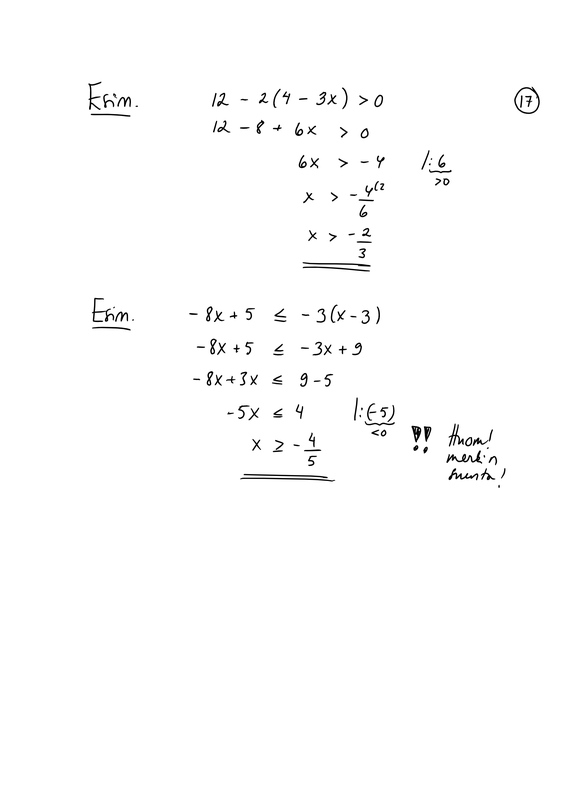 Esim. 12 - 2(4 - 3x) > 0 17
12 - 8 + 6x > 0
6x > -4 |:6
>0
x > -4/6 (2
x > -2/3
Esim. -8x + 5 ≤ -3(x - 3)
-8x + 5 ≤ -3x + 9
-8x + 3x ≤ 9 - 5
-5x ≤ 4 |:(-5)
<0
!! Huom!
x ≥ -4/5 merkin
suunta!